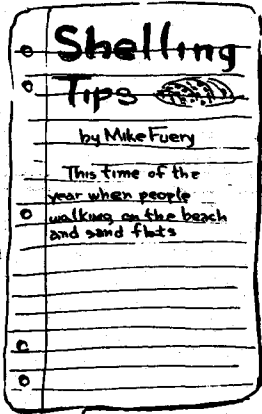 Shelling
Tips
by Mike Fuery
This time of the
year when people
walking on the beach
and sand flats